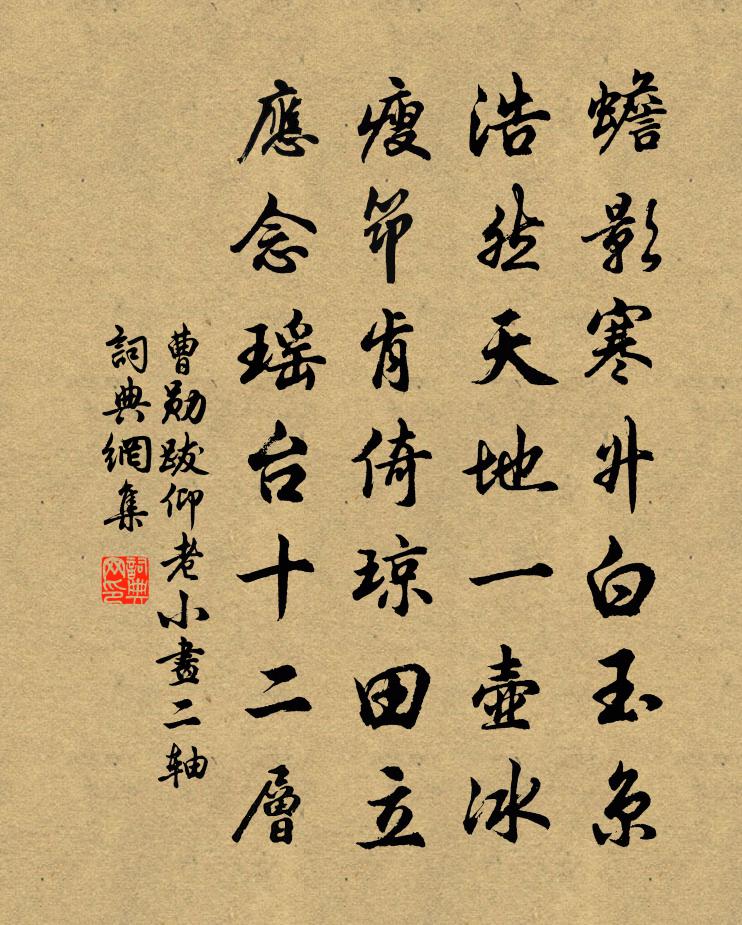 蟾影寒升白玉京
浩然天地一壺冰
瘦筇肯倚琼田立
應念瑶台十二層
曹勛跋仰老小畫二轴
詞典網集
詞典网印